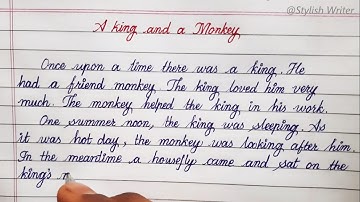 @Stylish Writer
A king and a Monkey
Once upon a time there was a king. He
had a friend monkey. The king loved him very
much. The monkey helped the king in his work.
One summer noon, the king was sleeping. As
it was hot day, the monkey was looking after him.
In the meantime a housefly came and sat on the
king's